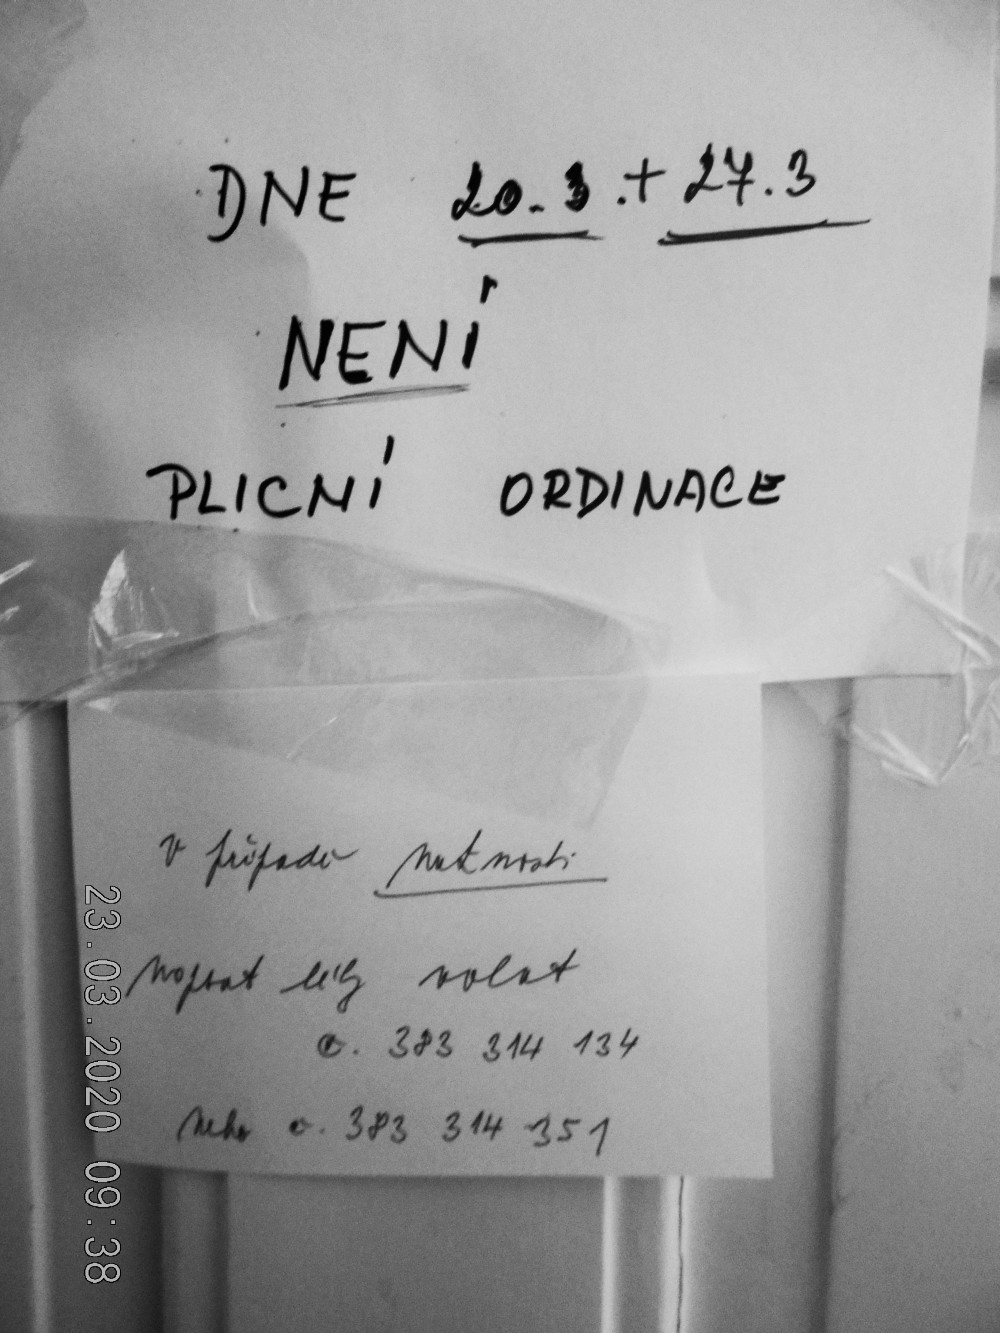 DNE 20.3.+ 27.3
NENÍ
PLICNÍ ORDINACE
v případě nutnosti
napsat léky volat
č. 383 314 134
nebo č. 383 314 351
23.03.2020 09:38